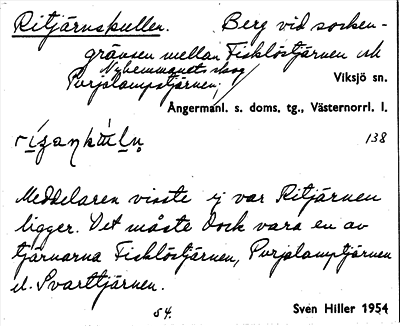 Ritjärnskullen. Berg vid socken-
gränsen mellan Fisklöstjärnen och
Nybemmanets skog
Purjelampstjärnen,
Viksjö sn.
Ångermanl. s. doms. tg., Västernorrl. l.
138
Meddelaren visste ej var Ritjärnen
ligger. Det måste dock vara en av
tjärnarna Fisklöstjärnen, Purjelamptjärnen
el. Svarttjärnen.
54.
Sven Hiller 1954